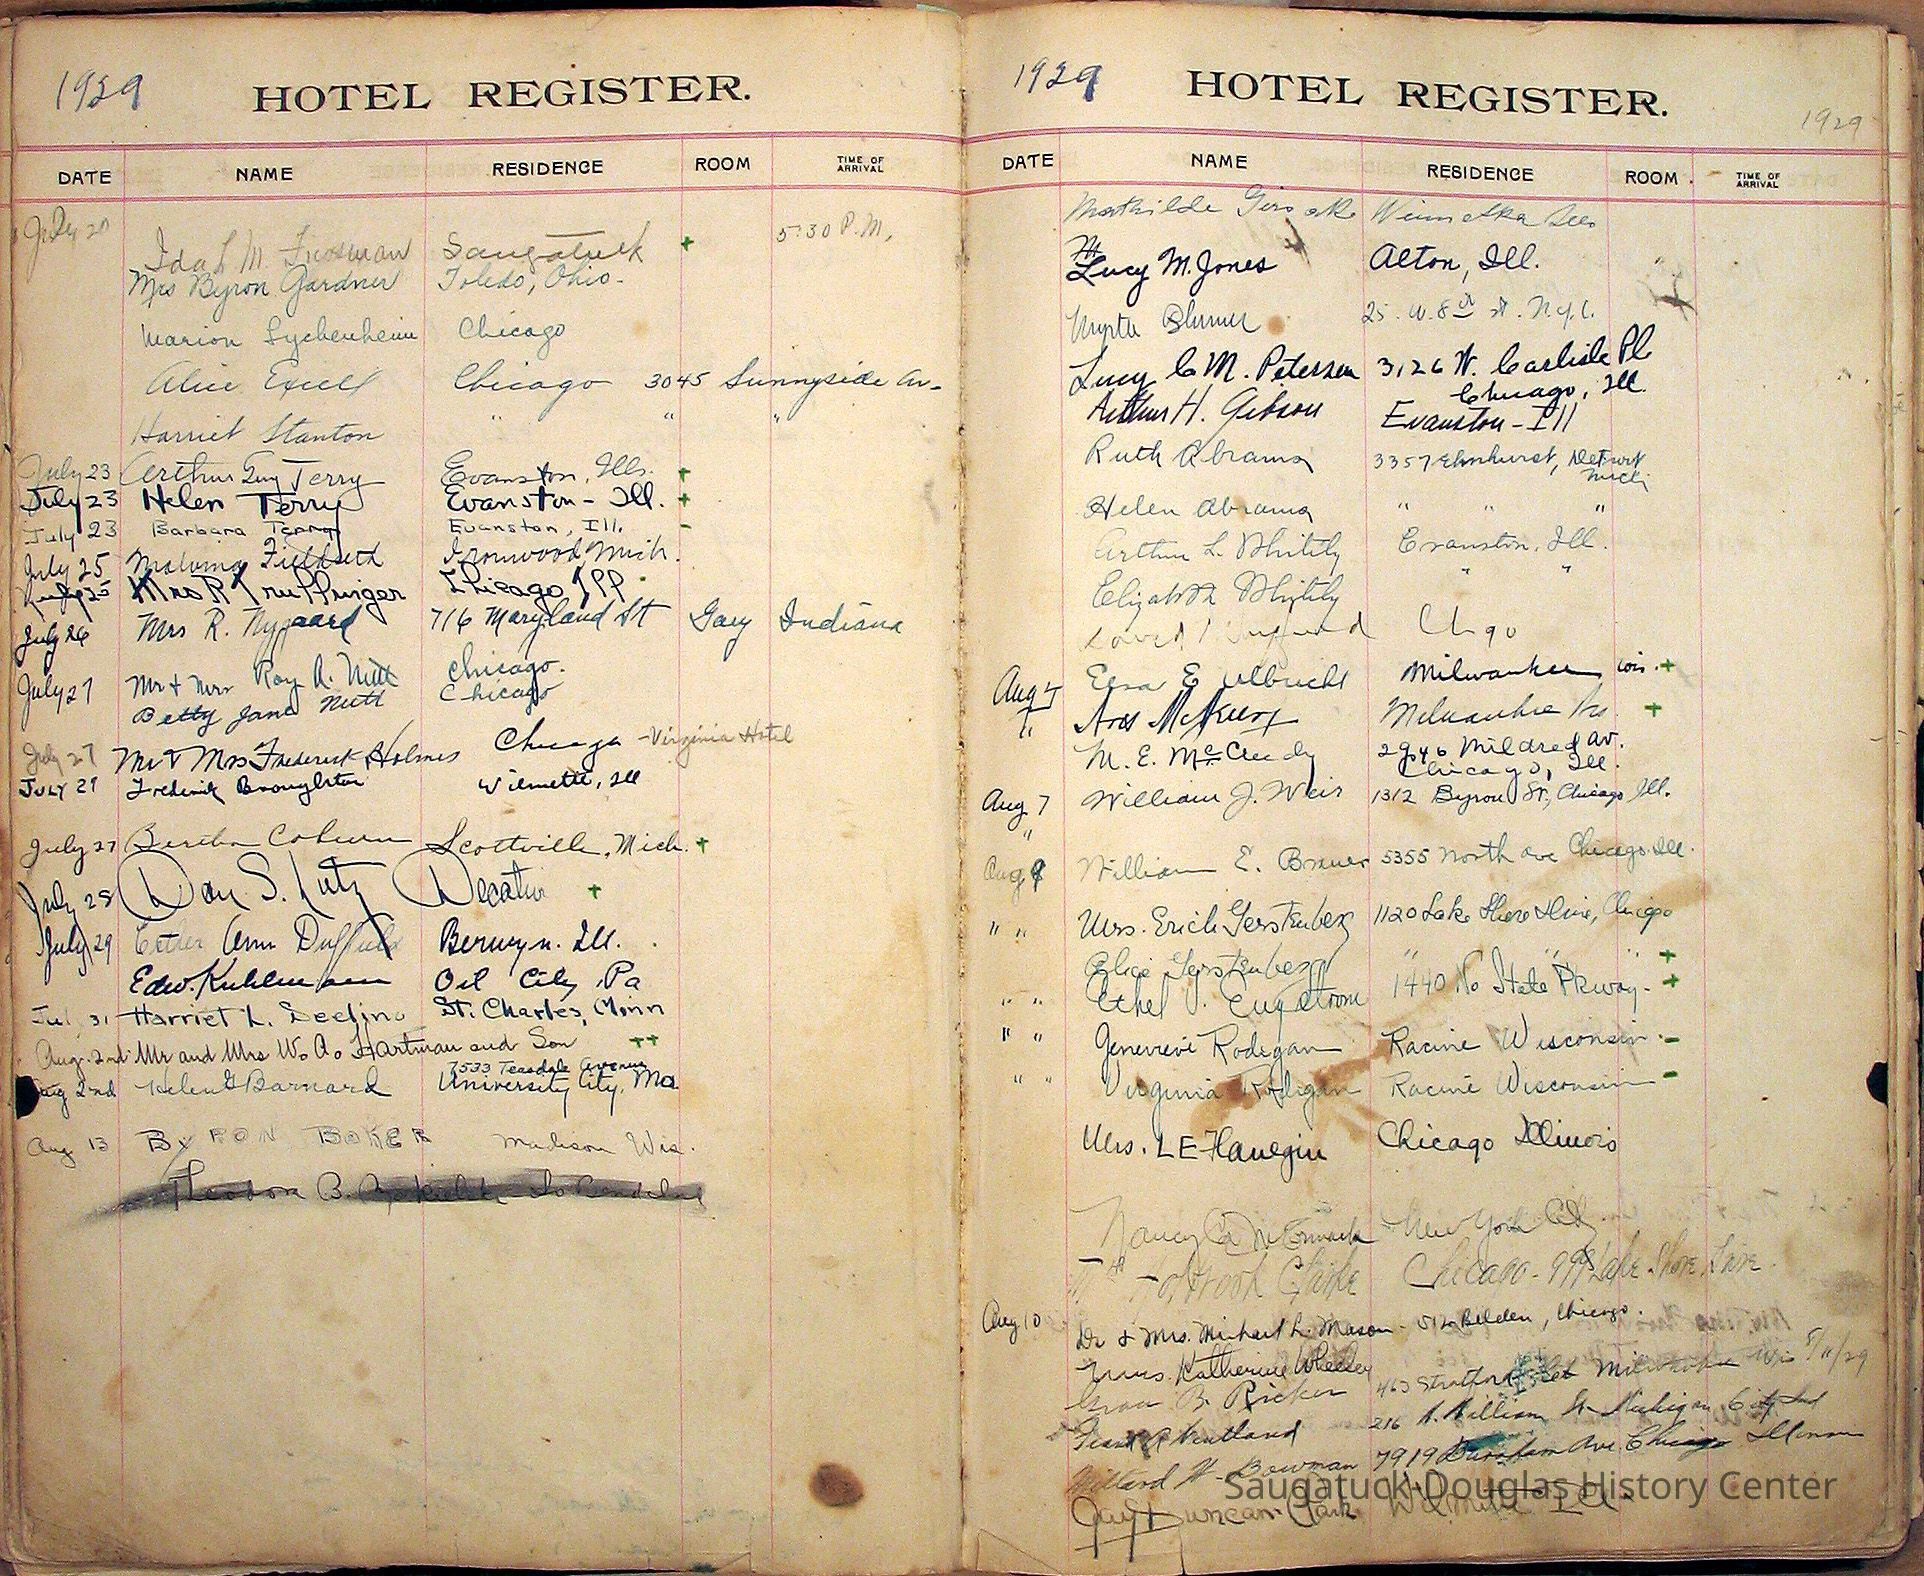 1929
HOTEL REGISTER.
DATE NAME RESIDENCE ROOM TIME OF ARRIVAL
July 20 5:30 P.M.
Ida L M. Saugatuck +
Mrs Byron Gardner Toledo, Ohio.
Marion Chicago
Alice Excell Chicago 3045 Sunnyside Av.
Harriet Stanton " " "
July 23 Arthur Guy Terry Evanston, Ills. +
July 23 Helen Terry Evanston - Ill. +
July 23 Barbara Terry Evanston, Ill. -
July 25 Ironwood, Mich.
July 25 Mrs R Chicago Ill
July 26 Mrs R. Nygaard 716 Maryland St Gary Indiana
July 27 Mr + Mrs Roy A. Nutt Chicago.
Betty Jane Nutt Chicago
July 27 Mr & Mrs Frederick Holmes Chicago - Virginia Hotel
July 29 Frederick Broughton Wilmette, Ill
July 27 Bertha Coburn Scottville, Mich. +
July 28 Dan S. Lutz Decatur +
July 29 Esther Ann Duffield Berwyn. Ill.
Edw. Kuhlmann Oil City, Pa
Jul 31 Harriet L. Seeling St. Charles, Minn
Aug. 2nd Mr and Mrs W. A. Hartman and Son ++
7533 Teasdale Avenue
Aug 2nd Helen G Barnard University City, Mo
Aug 13 BYRON BOKER Madison Wis.
Theodora B.
1929
HOTEL REGISTER.
1929
DATE NAME RESIDENCE ROOM TIME OF ARRIVAL
Mathilde Winnetka Ills
Lucy M. Jones Alton, Ill.
Myrta 25. W. 8th St. N.Y.C.
Lucy C M. Petersen 3126 W. Carlisle Pl
Chicago, Ill.
Arthur H. Gibson Evanston - Ill
Ruth Abrams 3357 Elmhurst, Detroit
Mich
Helen Abrams " " "
Arthur L. Evanston, Ill.
Elizabeth " "
Chgo
Aug 4 E Ulbricht Milwaukee Wis. +
" Milwaukee Wis. +
M. E. McCready 2946 Mildred Av.
Chicago, Ill.
Aug 7 William J. Weir 1312 Byron St., Chicago Ill.
"
Aug 9 William E. 5355 North Ave Chicago Ill.
" " Mrs. Erich Gerstenberg 1120 Lake Shore Drive, Chicago
Alice Gerstenberg " " " +
" " Ethel Engstrom 1440 No State Pkway. +
" " Genevieve Rodigan Racine Wisconsin. -
" " Virginia Rodigan Racine Wisconsin -
Mrs. L E Flanegin Chicago Illinois
Nancy McCormack New York City
Chicago - 999 Lake Shore Drive.
Aug 10 Dr & Mrs. Michael L. Mason - Belden, Chicago.
Katherine
B. Ricker 463 Stratford Milwaukee Wis 8/11/29
216 William St Michigan City Ind
Willard H. Bowman 7919 Ave. Chicago Illinois
Duncan Clark
Saugatuck-Douglas History Center